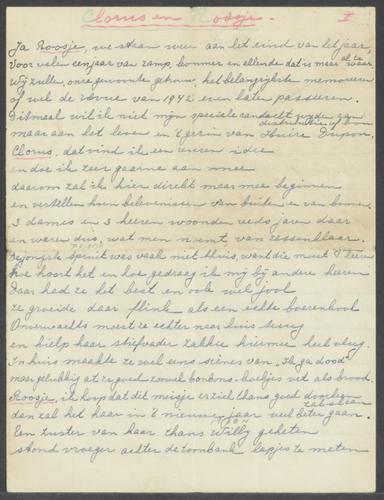 Clorus en Roosje. I
Ja Roosje, we staan weer aan het eind van het jaar,
Voor velen een jaar van ramp, kommer en ellende dat is maar al te waar
Wij zullen, onze gewoonte getrouw, het belangrijkste memoreren
of wel de revue van 1942 even laten passeren.
Ditmaal wil ik niet mijn speciale aandacht aan distributie of
maar aan het leven en 't gezin van Huize Dupon.
Clorus, dat vind ik een idee
en doe ik zeer gaarne aan mee
daarom zal ik hier direkt maar mee beginnen
en vertellen hun belevenissen van buiten en van binnen.
3 dames en 3 heeren woonden reeds jaren daar
en waren dus, wat men noemt van zessenklaar.
De jongste spruit was vaak niet thuis, want die moest leeren
Hoe hoort het en hoe gedraag ik mij bij andere heeren
Daar had ze het best en ook wel jool
ze groeide daar flink als een echte boerenkool
Onverwachts moest ze echter naar huis terug
en kielp haar stiefvader zakkie hiermee heel vlug.
In huis maakte ze wel eens scènes van, Ik ga dood
maar gelukkig at ze goed zoowel bonbons, koekjes net als brood.
Roosje, ik hoop dat dit meisje er ziel thans goed doorheen zal slaan
dan zal het haar in 't nieuwe jaar veel beter gaan.
Een zuster van haar thans Willy geheten
stond vroeger achter de toonbank lapjes te meten